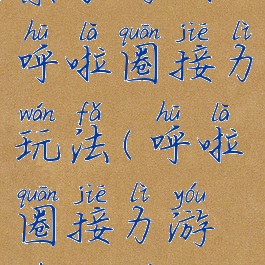 hū lā quān jiē lì
呼啦圈接力
wán fǎ hū lā
玩法(呼啦
quān jiē lì yóu
圈接力游